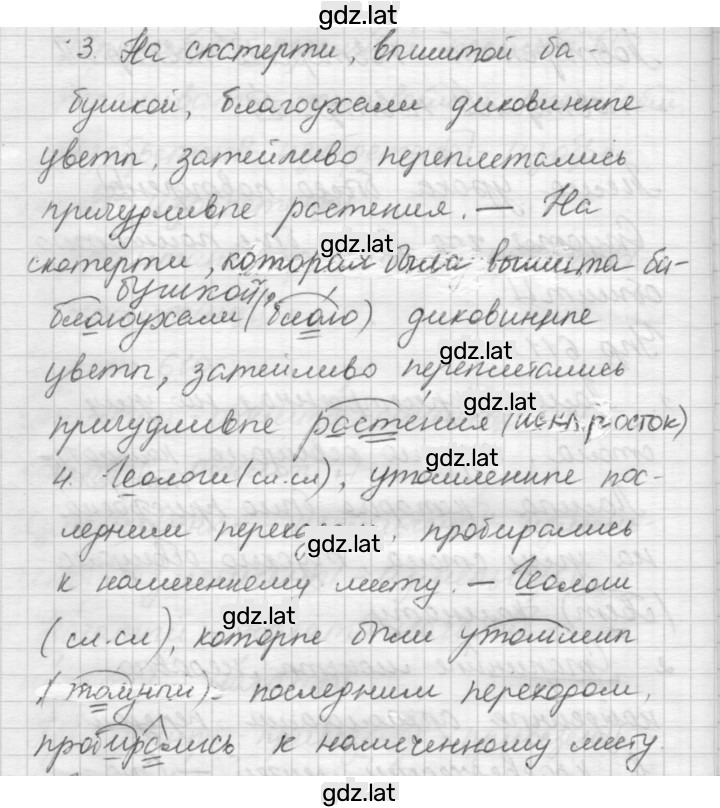 gdz.lat
3. На скатерти, вышитой ба-
бушкой, благоухали диковинные
цветы, затейливо переплетались
причудливые растения. — На
gdz.lat
скатерти, которая была вышита ба-
бушкой,
благоухали (благо) диковинные
gdz.lat
цветы, затейливо переплетались
gdz.lat
причудливые растения (искл. росток)
gdz.lat
4. Геологи (сл.сл), утомленные пос-
ледним переходом, пробирались
gdz.lat
к намеченному месту. — Геологи
gdz.lat
(сл.сл), которые были утомлены
(томный) последним переходом,
gdz.lat
пробирались к намеченному месту.
gdz.lat